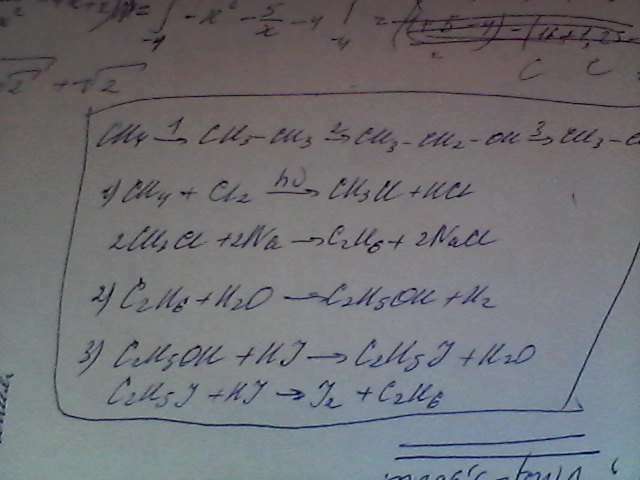 CH4 1→ CH3-CH3 2→ CH3-CH2-OH 3→ CH3-C
1) CH4 + Cl2 hυ→ CH3Cl + HCl
2CH3Cl + 2Na → C2H6 + 2NaCl
2) C2H6 + H2O → C2H5OH + H2
3) C2H5OH + HJ → C2H5J + H2O
C2H5J + HJ → J2 + C2H6